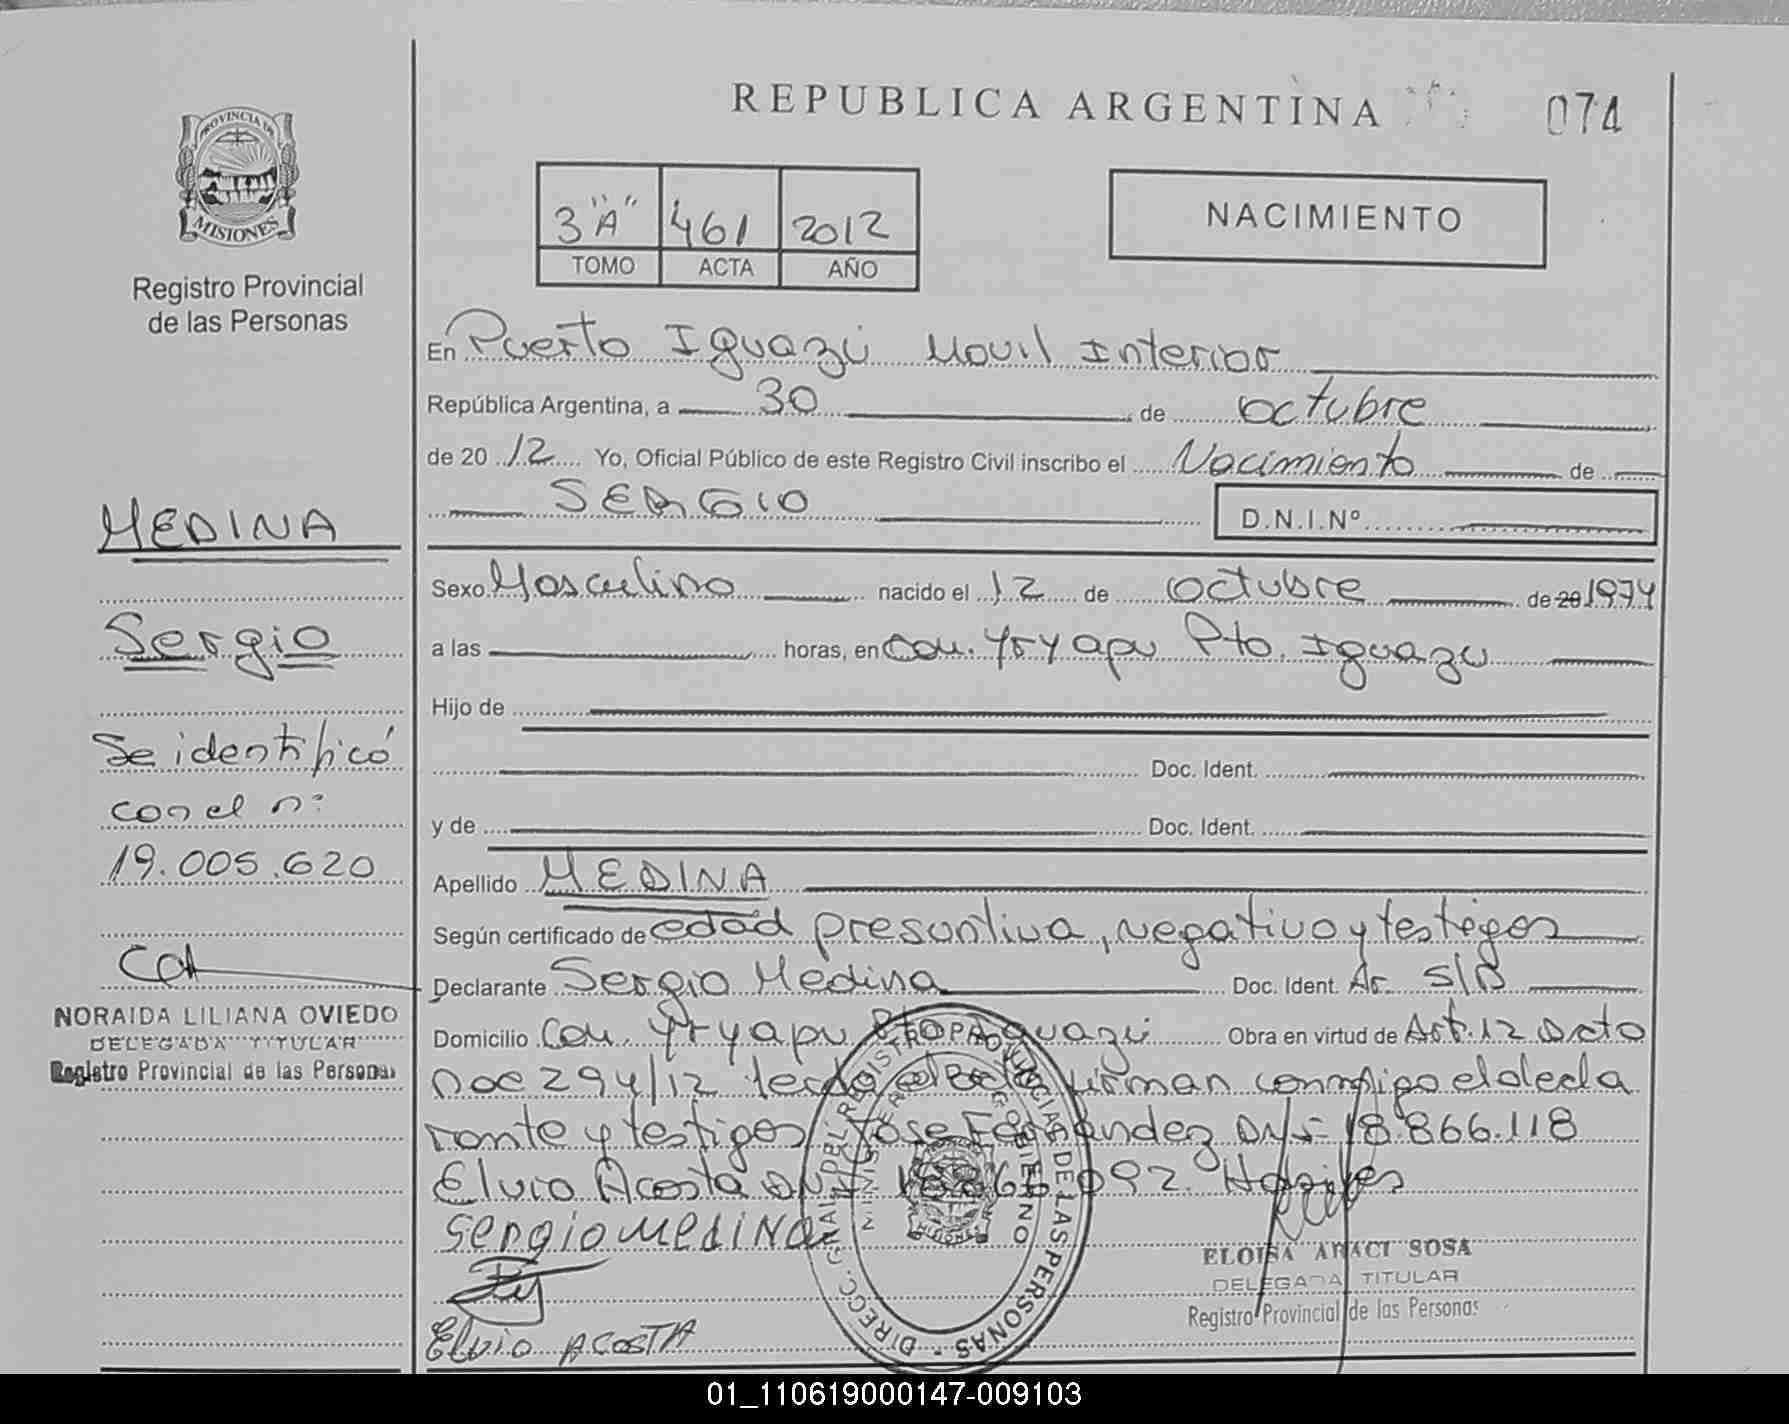 REPUBLICA ARGENTINA
074
PROVINCIA DE
MISIONES
Registro Provincial
de las Personas
3 "A" 461 2012
TOMO ACTA AÑO
NACIMIENTO
En Puerto Iguazú Movil Interior
República Argentina, a 30 de octubre
de 20 12 Yo, Oficial Público de este Registro Civil inscribo el Nacimiento de
SERGIO
D.N.I.Nº
Sexo Masculino nacido el 12 de octubre de 20 1974
a las horas, en Com. Yryapu Pto. Iguazu
Hijo de
Doc. Ident.
y de Doc. Ident.
Apellido MEDINA
Según certificado de edad presuntiva, negativo y testigos
Declarante Sergio Medina Doc. Ident. Ar. S/D
Domicilio Com. Yryapu Pto Iguazú Obra en virtud de Art. 12 Dcto
Nac 294/12 leida el acta firman conmigo el decla
rante y testigos Jose Fernández DNI 18.866.118
Elvio Acosta DNI 18866092.
Sergio Medina
Elvio ACOSTA
MEDINA
Sergio
Se identificó
con el nº
19.005.620
NORAIDA LILIANA OVIEDO
DELEGADA TITULAR
Registro Provincial de las Personas
DIRECC. GRAL DEL REGISTRO PROVINCIAL DE LAS PERSONAS
MINISTERIO GOBIERNO
MISIONES
ELOISA ARACI SOSA
DELEGADA TITULAR
Registro Provincial de las Personas
01_110619000147-009103